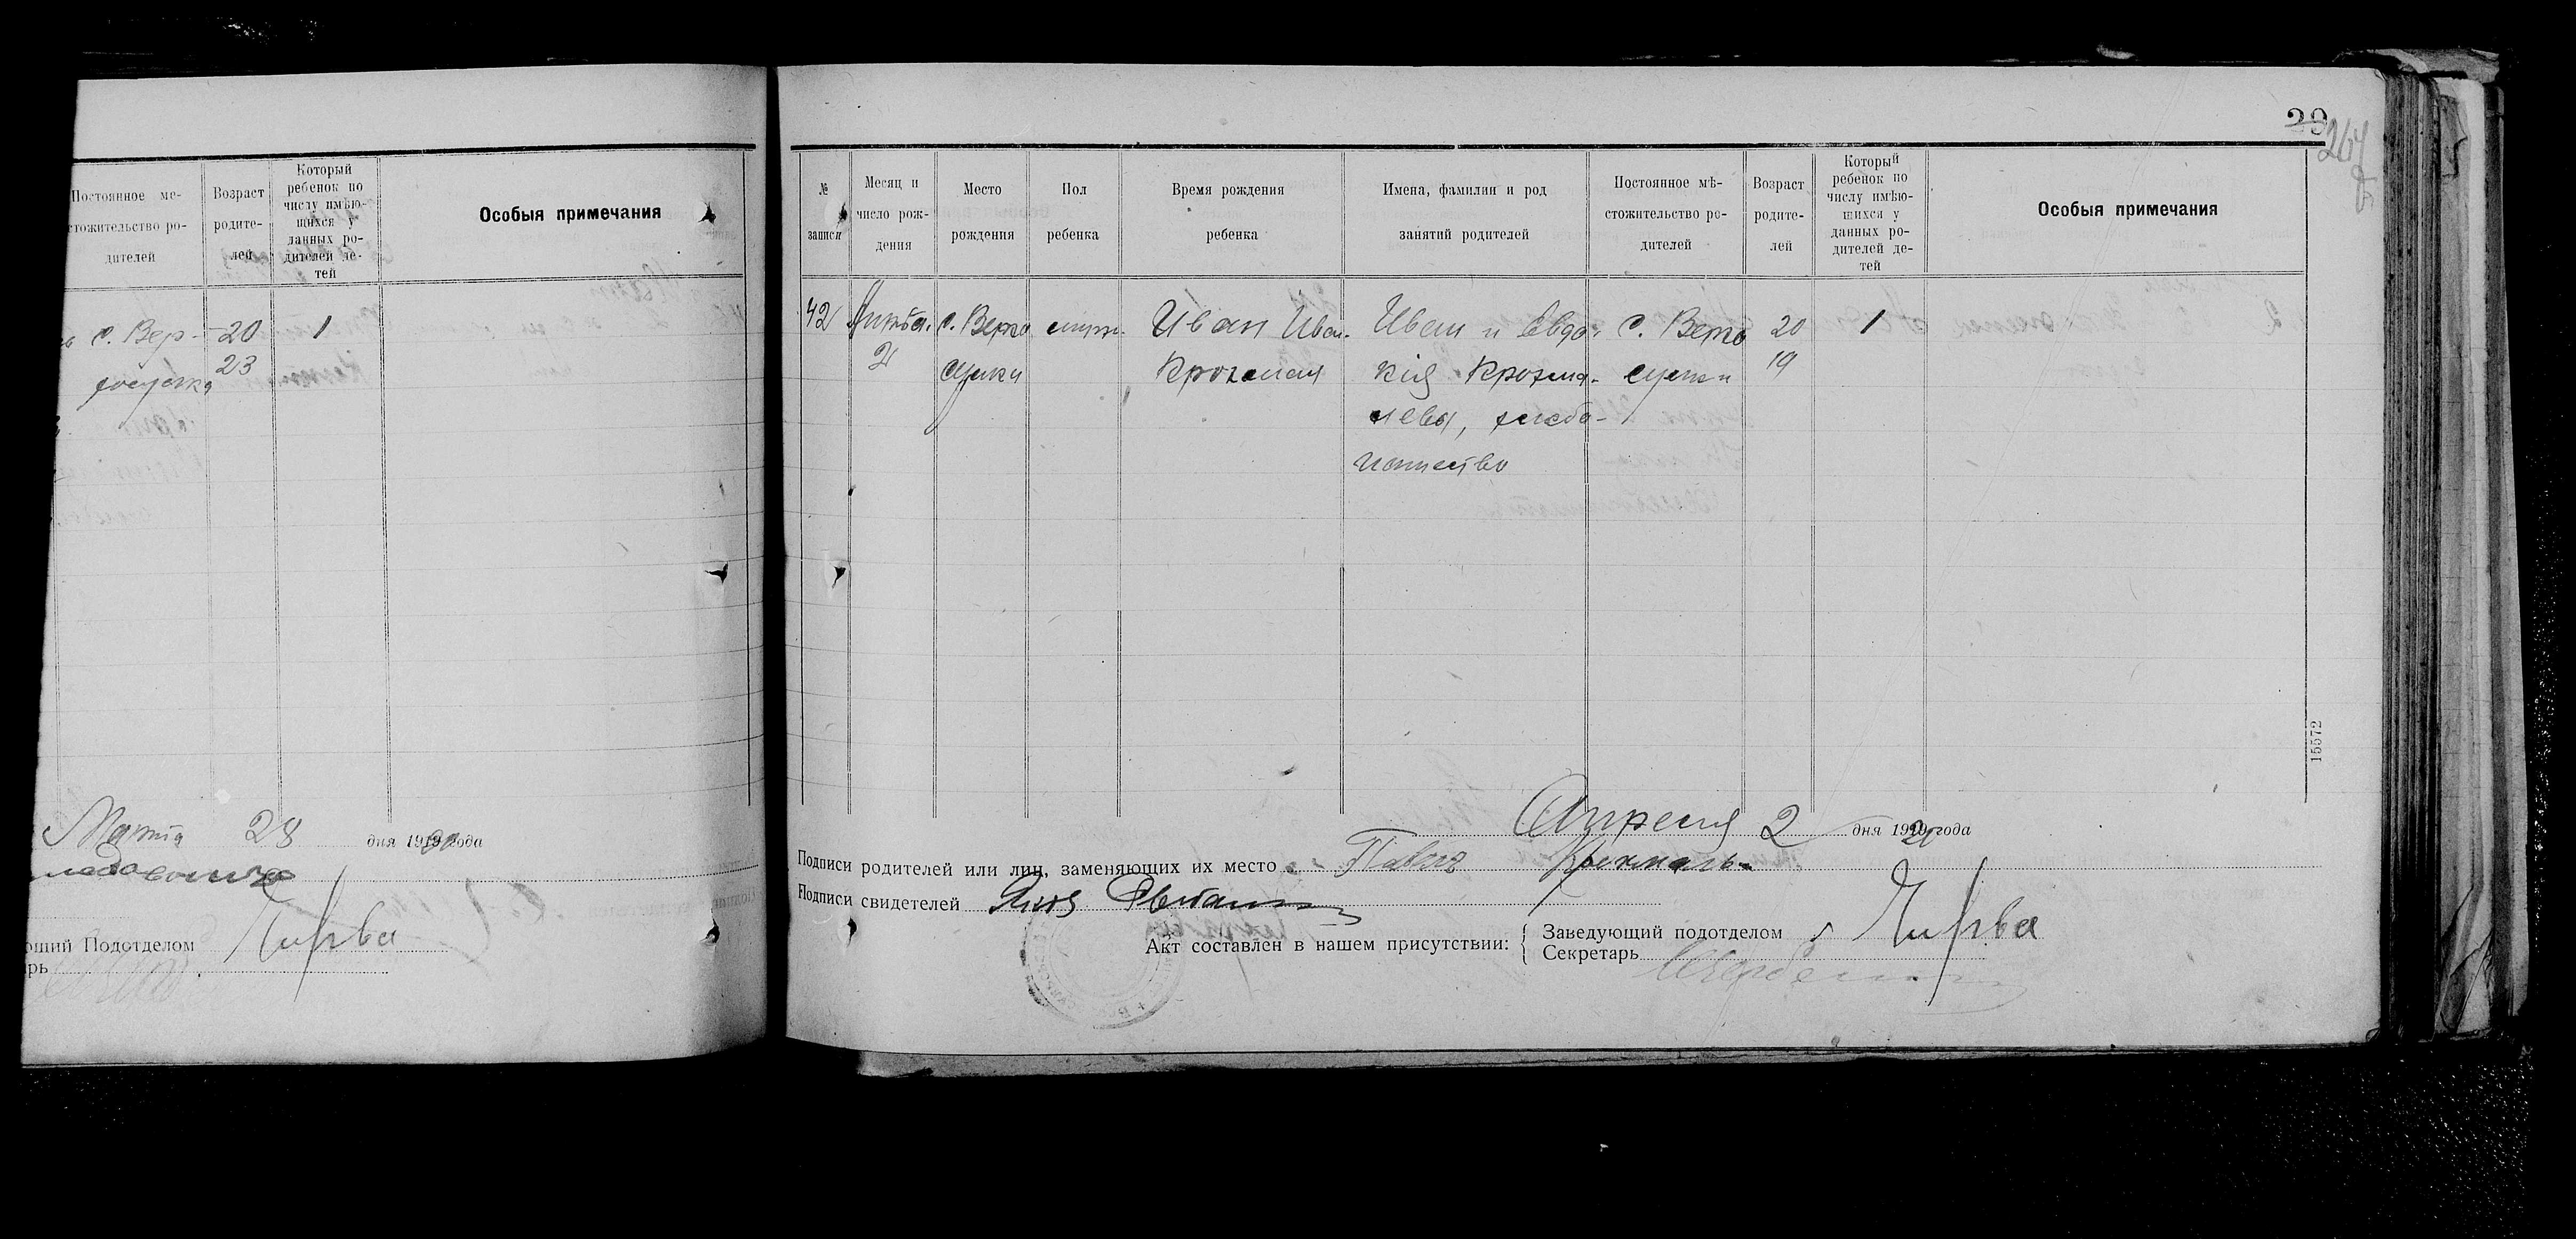 Постоянное ме-
стожительство ро-
дителей
Возраст
родите-
лей
Который
ребенок по
числу имѣю-
щихся у
данных ро-
дителей де-
тей
Особыя примечания
с. Вер-
20
23
1
Марта 28 дня 1920 года
Подотделом Чирва
29
264
№
записи
Месяц и
число рож-
дения
Место
рождения
Пол
ребенка
Время рождения
ребенка
Имена, фамилии и род
занятий родителей
Постоянное мѣ-
стожительство ро-
дителей
Возраст
родите-
лей
Который
ребенок по
числу имѣю-
щихся у
данных ро-
дителей де-
тей
Особыя примечания
42
2
с. Верхо
сулка
муж.
Иван Иван.
Крохмаль
Иван и Евдо-
кия Крохма-
левы, хлебо-
пашество
с. Верхо
сулки
20
19
1
Апреля 2 дня 1920 года
Подписи родителей или лиц, заменяющих их место Павел Крохмаль
Подписи свидетелей
Акт составлен в нашем присутствии:
Заведующий подотделом Чирва
Секретарь
15572